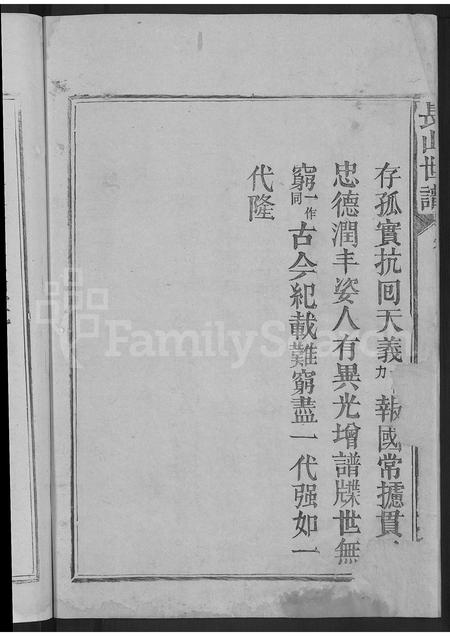 長山世譜
存孤實抗回天義力報國常攄貫
忠德潤丰姿人有異光增譜牒世無
窮一作同古今紀載難窮盡一代强如一
代隆
FamilySearch